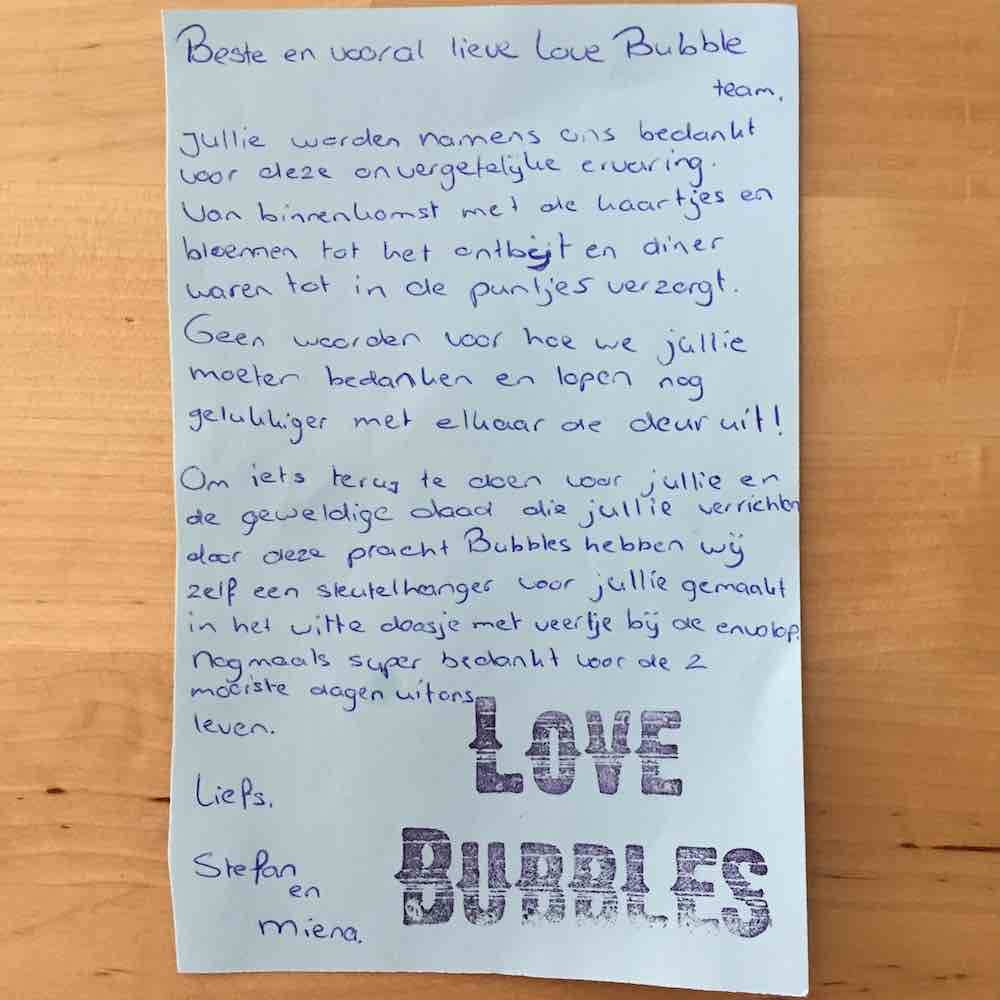 Beste en vooral lieve Love Bubble
team,
Jullie worden namens ons bedankt
voor deze onvergetelijke ervaring.
Van binnenkomst met de kaartjes en
bloemen tot het ontbijt en diner
waren tot in de puntjes verzorgt.
Geen woorden voor hoe we jullie
moeten bedanken en lopen nog
gelukkiger met elkaar de deur uit!
Om iets terug te doen voor jullie en
de geweldige daad die jullie verrichten
door deze pracht Bubbles hebben wij
zelf een sleutelhanger voor jullie gemaakt
in het witte doosje met veertje bij de envolop.
Nogmaals super bedankt voor de 2
mooiste dagen uit ons
leven.
Liefs,
Stefan
en
Miena.
LOVE
BUBBLES